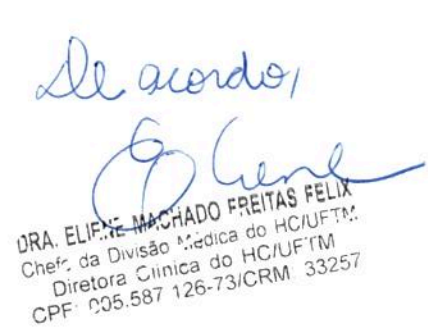 De acordo,
Eliene
DRA. ELIENE MACHADO FREITAS FELIX
Chefe da Divisão Médica do HC/UFTM
Diretora Clínica do HC/UFTM
CPF: 005.587 126-73/CRM: 33257